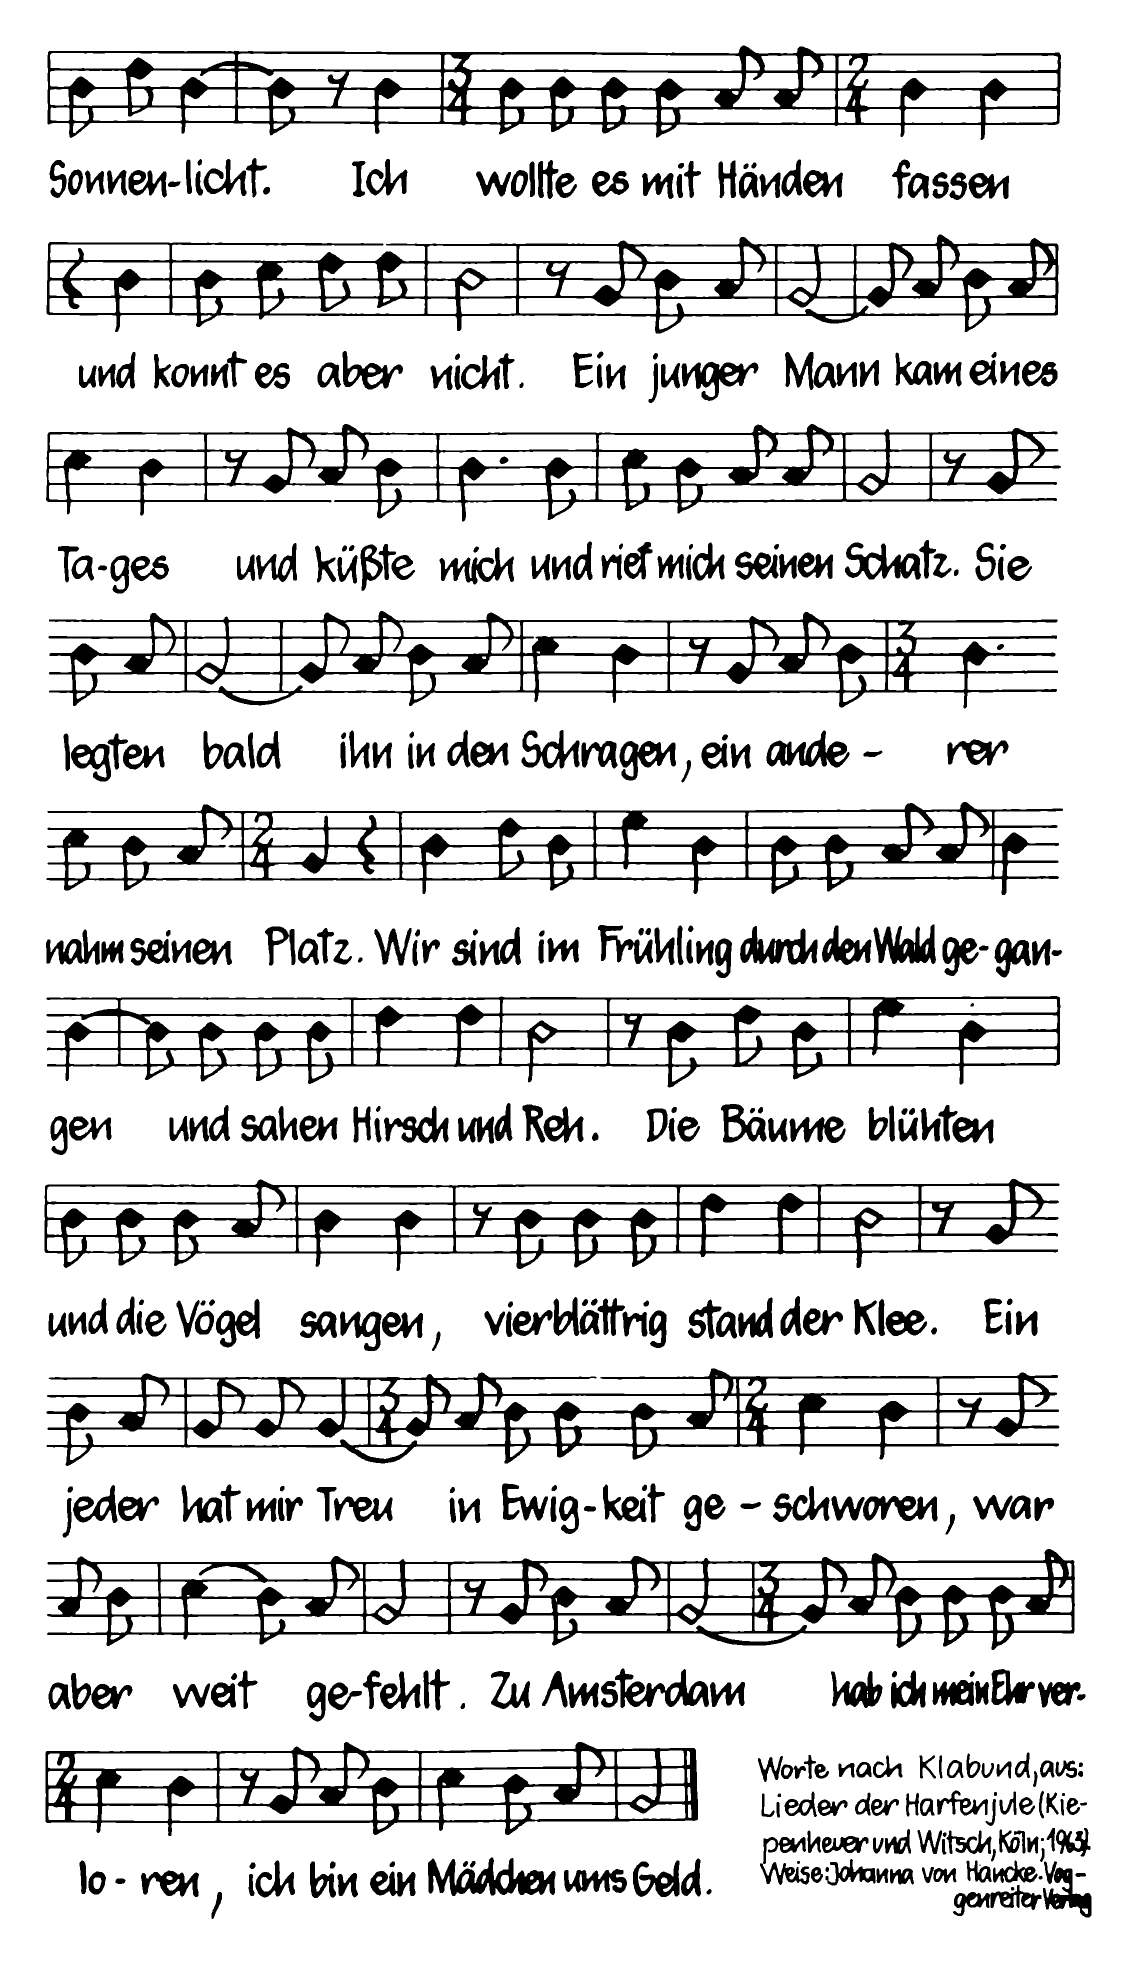 Sonnen-licht. Ich wollte es mit Händen fassen
und konnt es aber nicht. Ein junger Mann kam eines
Ta-ges und küßte mich und rief mich seinen Schatz. Sie
legten bald ihn in den Schragen, ein ande - rer
nahm seinen Platz. Wir sind im Frühling durch den Wald ge-gan-
gen und sahen Hirsch und Reh. Die Bäume blühten
und die Vögel sangen, vierblättrig stand der Klee. Ein
jeder hat mir Treu in Ewig-keit ge - schworen, war
aber weit ge-fehlt. Zu Amsterdam hab ich mein Ehr ver-
lo - ren, ich bin ein Mädchen ums Geld.
Worte nach Klabund, aus:
Lieder der Harfenjule (Kie-
penheuer und Witsch, Köln, 1963).
Weise: Johanna von Hancke. Vog-
genreiter Verlag